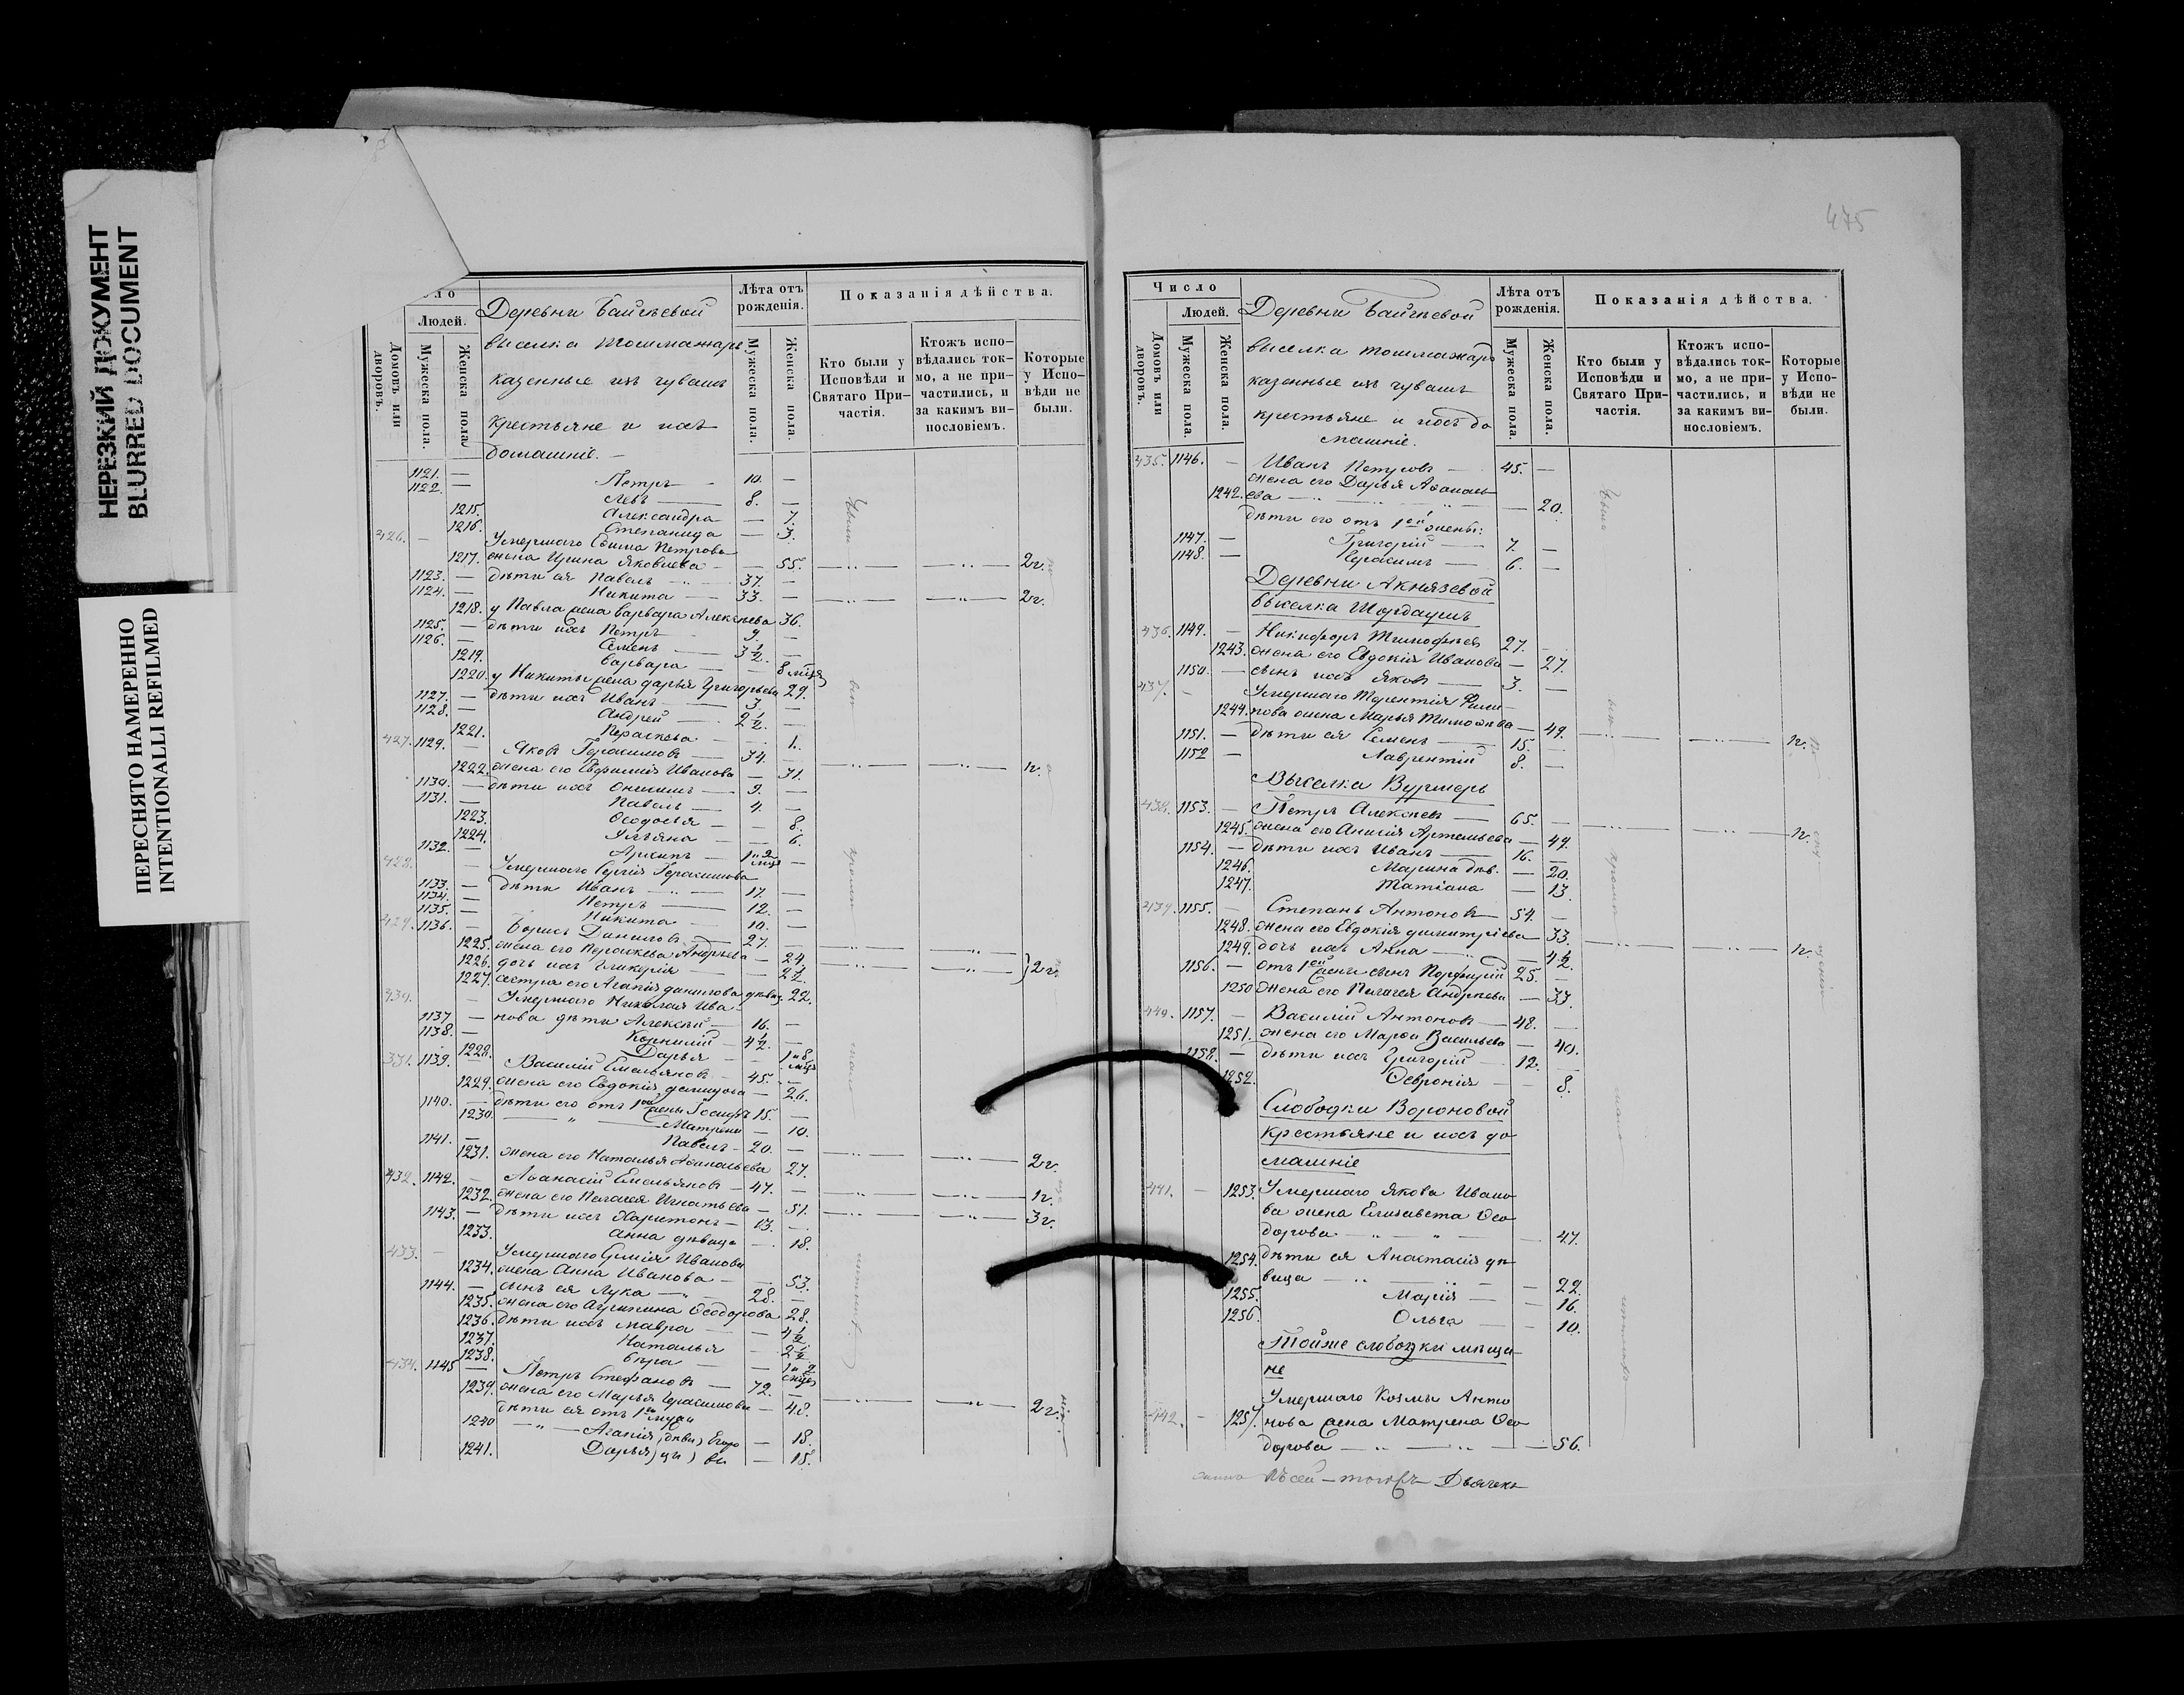 НЕРЕЗКИЙ ДОКУМЕНТ
BLURRED DOCUMENT
ПЕРЕСНЯТО НАМЕРЕННО
INTENTIONALLI REFILMED
Людей.
Домовъ или дворовъ.
Мужеска пола.
Женска пола
Деревни Байгѣевой
выселка Тошмажаръ
казенные изъ чувашъ
крестьяне и ихъ
домашніе. —
Лѣта отъ рожденія.
Мужеска пола.
Женска пола.
Показанія дѣйства.
Кто были у Исповѣди и Святаго Причастія.
Ктожъ исповѣдались токмо, а не причастились, и за какимъ винословіемъ.
Которые у Исповѣди не были.
1121. — Петръ — 10. —
1122. — Левъ — 8. —
1215. Александра — 7.
1216. Степанида — 3.
426. — Умершаго Ефима Петрова
1217. жена Ирина Яковлева — 55. 2 г.
1123. — дѣти ея Павелъ — 37. —
1124. — Никита — 33. — 2 г.
1218. у Павла жена Варвара Алексѣева 36.
1125. — дѣти ихъ Петръ 9. —
1126. — Семенъ — 3 ½. —
1219. Варвара — 8 мѣся
1220. у Никиты жена Дарья Григорьева 29.
1127. — дѣти ихъ Иванъ — 3. —
1128. — Андрей — 2 ½. —
1221. Параскева — 1.
427. 1129. — Яковъ Герасимовъ — 34. —
1222. жена его Евфимія Иванова — 31. 1 г.
1130. — дѣти ихъ Онисимъ — 9. —
1131. — Павелъ — 4. —
1223. Ѳеодосья — 8.
1224. Ульяна — 6.
1132. — Архипъ — 1 и 2 мѣся —
428. — Умершаго Сергія Герасимова
1133. — дѣти Иванъ — 17. —
1134. — Петръ — 12. —
1135. — Никита — 10. —
429. 1136. — Борисъ Даниловъ — 27. —
1225. жена его Параскева Андреева — 24.
1226. дочь ихъ Гликерія — 2 ½. 2 г.
1227. сестра его Агапія Данилова дѣвиц. 22.
430. — Умершаго Николая Ива-
1137 — нова дѣти Алексѣй — 16. —
1138. — Корнилій — 4 ½. —
1228. Дарья — 1 и 8 мѣся
431. 1139. — Василій Емельяновъ — 45. —
1229. жена его Евдокія Данилова — 26.
1140. — дѣти его отъ 1ой жены Іосифъ 15 —
1230. — Матрена — 10.
1141. — Павелъ — 20. —
1231. жена его Наталья Аѳанасьева 27. 2 г.
432. 1142. — Аѳанасій Емельяновъ — 47. —
1232. жена его Пелагея Игнатьева — 51. 1 г.
1143. — дѣти ихъ Харитонъ — 13. — 3 г.
1233. Анна дѣвица — 18.
433. — Умершаго Иванова
1234. жена Анна Иванова — 53.
1144. — сынъ ея Лука — 28. —
1235. жена его Агрипина Ѳеодорова 28.
1236. дѣти ихъ Мавра — 4 ½
1237. Наталья — 2 ½
1238. Вѣра — 1 и 2 мѣся
434. 1145 — Петръ Стефановъ — 72. —
1239. жена его Марья Герасимова — 48. 2 г.
дѣти ея отъ 1го мужа
1240 — Агапія (дѣви) Егоро — 18.
1241. Дарья) цы) вы — 15.
475
Число
Людей.
Домовъ или дворовъ.
Мужеска пола.
Женска пола.
Деревни Байгѣевой
выселка Тошмажаръ
казенные изъ чувашъ
крестьяне и ихъ до
машніе.
Лѣта отъ рожденія.
Мужеска пола.
Женска пола.
Показанія дѣйства.
Кто были у Исповѣди и Святаго Причастія.
Ктожъ исповѣдались токмо, а не причастились, и за какимъ винословіемъ.
Которые у Исповѣди не были.
435. 1146. — Иванъ Петровъ — 45. —
жена его Дарья Аѳанась
1242. ева — 20.
дѣти его отъ 1ой жены:
1147. — Григорій — 7. —
1148. — Герасимъ — 6. —
Деревни Акнязевой
выселка Шордаушъ
436. 1149. — Никифоръ Тимофѣевъ 27. —
1243. жена его Евдокія Иванова — 27.
1150. — сынъ ихъ Яковъ — 3. —
437. — Умершаго Терентія Фили
1244. пова жена Марья Тимоѳѣева — 49. 1 г.
1151. — дѣти ея Семенъ — 15. —
1152 — Лаврентій 8. —
Выселка Вурмеръ
438. 1153. — Петръ Алексѣевъ — 65. —
1245. жена его Анисія Артемьева — 49. 1 г.
1154. — дѣти ихъ Иванъ — 16. —
1246. Марина дѣв. — 20.
1247. Татіана — 13.
439. 1155. — Степанъ Антоновъ — 54. —
1248. жена его Евдокія Димитріева — 33. 1 г.
1249. дочь ихъ Анна — 4 ½.
1156. — отъ 1ой жены сынъ Порфирій 25. —
1250 жена его Пелагея Андреева — 33.
440. 1157. — Василій Антоновъ — 48. —
1251. жена его Марѳа Васильева — 40.
1158. — дѣти ихъ Григорій — 12. —
1252. Ѳевронія — 8.
Слободки Вороновой
крестьяне и ихъ до
машніе
441. — 1253. Умершаго Якова Ивано
ва жена Елисавета Ѳео
дорова — 47.
1254. дѣти ея Анастасія дѣ
вица — 22.
1255. Марія — 16.
1256. Ольга — 10.
Тойже слободки мѣща
не
Умершаго Козмы Анто
442. — 1257. нова жена Матрена Ѳео
дорова — 56.
Дьячекъ